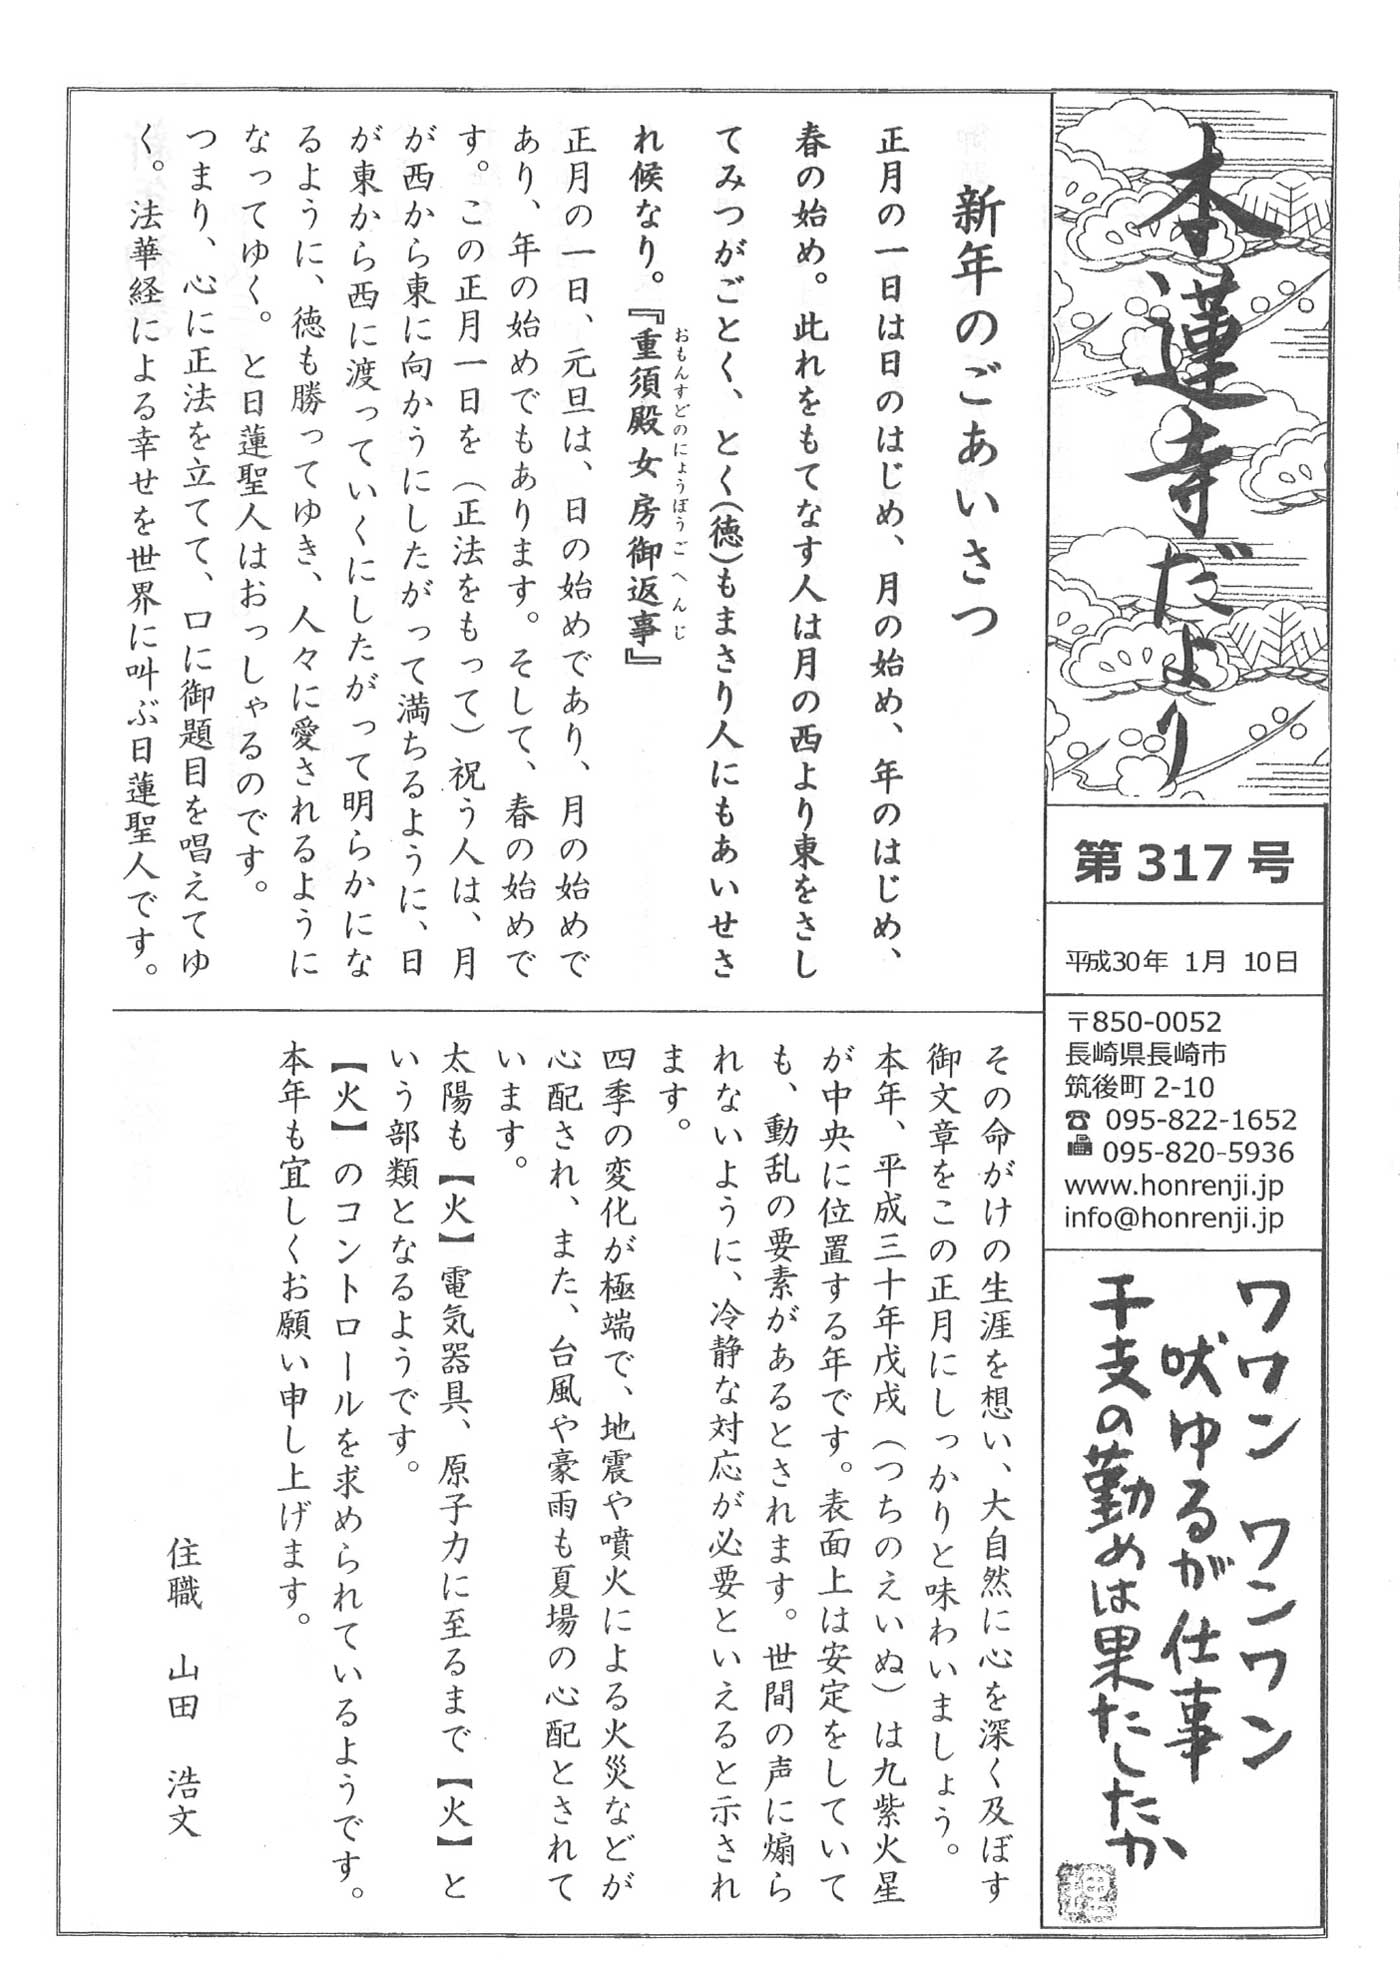 本蓮寺だより
第317号
平成30年 1月 10日
〒850-0052
長崎県長崎市
筑後町 2-10
☎ 095-822-1652
095-820-5936
www.honrenji.jp
info@honrenji.jp
ワワン ワンワン
吠ゆるが仕事
干支の勤めは果たしたか
新年のごあいさつ
正月の一日は日のはじめ、月の始め、年のはじめ、
春の始め。此れをもてなす人は月の西より東をさし
てみつがごとく、とく(徳)もまさり人にもあいせさ
れ候なり。『重須殿女房御返事』
おもんすどのにょうぼうごへんじ
正月の一日、元旦は、日の始めであり、月の始めで
あり、年の始めでもあります。そして、春の始めで
す。この正月一日を（正法をもって）祝う人は、月
が西から東に向かうにしたがって満ちるように、日
が東から西に渡っていくにしたがって明らかにな
るように、徳も勝ってゆき、人々に愛されるように
なってゆく。と日蓮聖人はおっしゃるのです。
つまり、心に正法を立てて、口に御題目を唱えてゆ
く。法華経による幸せを世界に叫ぶ日蓮聖人です。
その命がけの生涯を想い、大自然に心を深く及ぼす
御文章をこの正月にしっかりと味わいましょう。
本年、平成三十年戊戌（つちのえいぬ）は九紫火星
が中央に位置する年です。表面上は安定をしていて
も、動乱の要素があるとされます。世間の声に煽ら
れないように、冷静な対応が必要といえると示され
ます。
四季の変化が極端で、地震や噴火による火災などが
心配され、また、台風や豪雨も夏場の心配とされて
います。
太陽も【火】電気器具、原子力に至るまで【火】と
いう部類となるようです。
【火】のコントロールを求められているようです。
本年も宜しくお願い申し上げます。
住職　山田　浩文